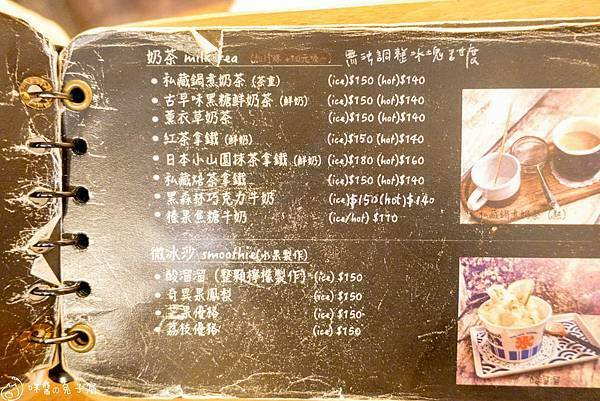 奶茶 milk tea (加珍珠+10元唷~) 無法調整冰塊甜度
• 私藏鍋煮奶茶 (茶壺) (ice)$150 (hot)$140
• 古早味黑糖鮮奶茶 (鮮奶) (ice)$150 (hot)$140
• 薰衣草奶茶 (ice)$150 (hot)$140
• 紅茶拿鐵 (鮮奶) (ice)$150 (hot)$140
• 日本小山園抹茶拿鐵 (鮮奶) (ice)$180 (hot)$160
• 私藏焙茶拿鐵 (ice)$150 (hot)$140
• 黑森林巧克力牛奶 (ice)$150 (hot)$140
• 榛果焦糖牛奶 (ice/hot) $170
私藏鍋煮奶茶(熱)
微冰沙 smoothie(水果製作)
• 酸溜溜 (整顆檸檬製作) (ice) $150
• 奇異果鳳梨 (ice) $150
• 芒果優格 (ice) $150
• 荔枝優格 (ice) $150
酸溜溜